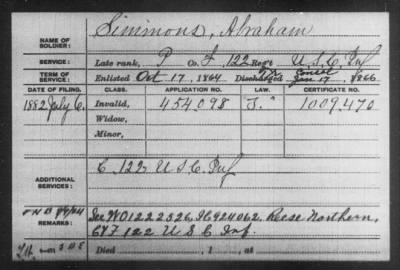 NAME OF SOLDIER: Simmons, Abraham
SERVICE: Late rank, P Co. F, 122 Reg't U.S.C. Inf
TERM OF SERVICE: Enlisted Oct 17, 1864 Discharged Jan 17, 1866
DATE OF FILING. CLASS. APPLICATION NO. LAW. CERTIFICATE NO.
1882 July 6. Invalid, 454,098 J. 1009,470
Widow,
Minor,
ADDITIONAL SERVICES: C. 122 U S C. Inf
REMARKS: See WO1222326, Reese Northern,
C & F 122 U S C Inf.
Died , 1 , at